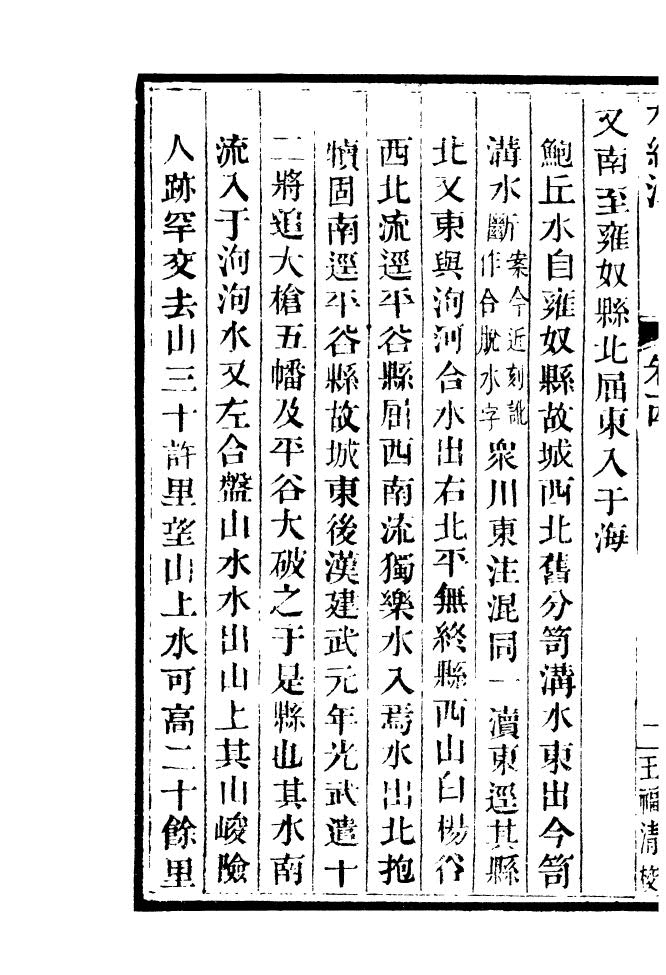 水經注 卷十四 二 王福清校
又南至雍奴縣北屈東入于海
鮑丘水自雍奴縣故城西北舊分笥溝水東出今笥
溝水斷案今近刻訛作合脫水字衆川東注混同一瀆東逕其縣
北又東與泃河合水出右北平無終縣西山白楊谷
西北流逕平谷縣屈西南流獨樂水入焉水出北抱
犢固南逕平谷縣故城東後漢建武元年光武遣十
二將追大槍五幡及平谷大破之于是縣也其水南
流入于泃泃水又左合盤山水水出山上其山峻險
人跡罕交去山三十許里望山上水可高二十餘里